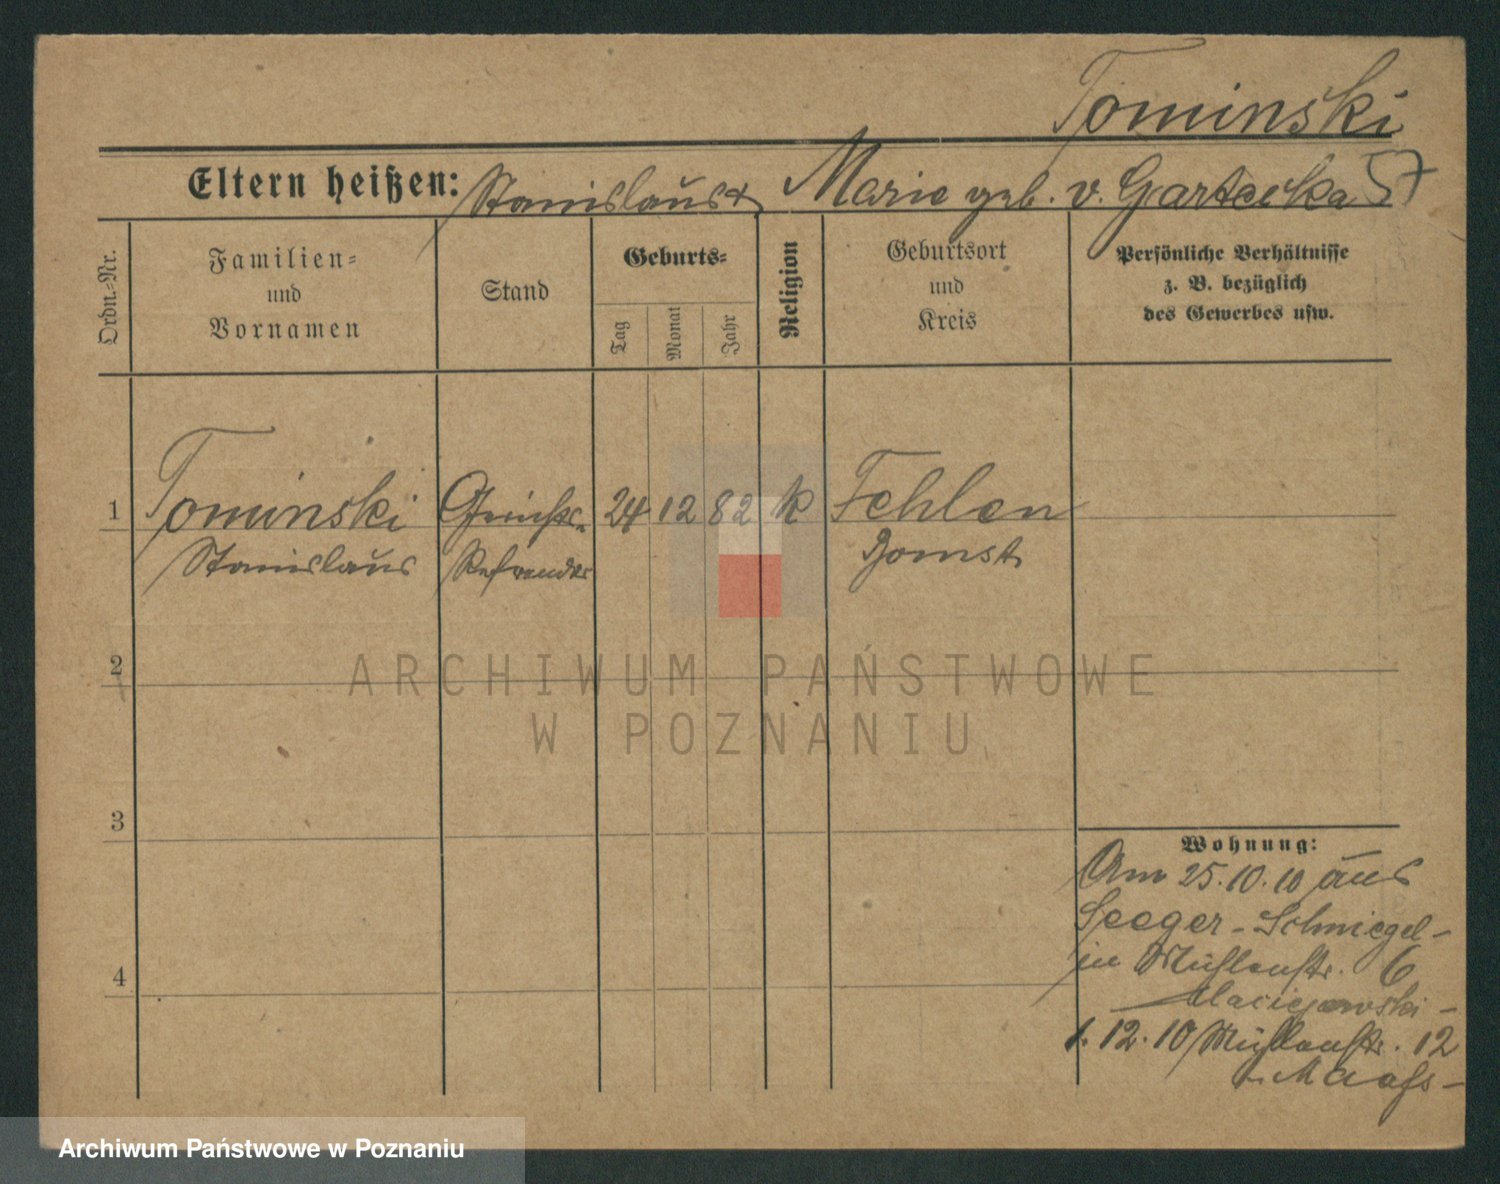 Tominski
57
Eltern heißen: Stanislaus & Marie geb. v. Gartecka
Ordn.-Nr.
Familien-
und
Vornamen
Stand
Geburts-
Tag
Monat
Jahr
Religion
Geburtsort
und
Kreis
Persönliche Verhältnisse
z. B. bezüglich
des Gewerbes usw.
1 Tominski Gerichts- 24 12 82 k Fehlen
Stanislaus Referendar Bomst
2
3
4
Wohnung:
Am 25.10.10 aus
Seeger - Schmiegel -
in Mühlenstr. 6
Maciejewski -
1.12.10 Mühlenstr. 12
- Maaß -
ARCHIWUM PAŃSTWOWE
W POZNANIU
Archiwum Państwowe w Poznaniu